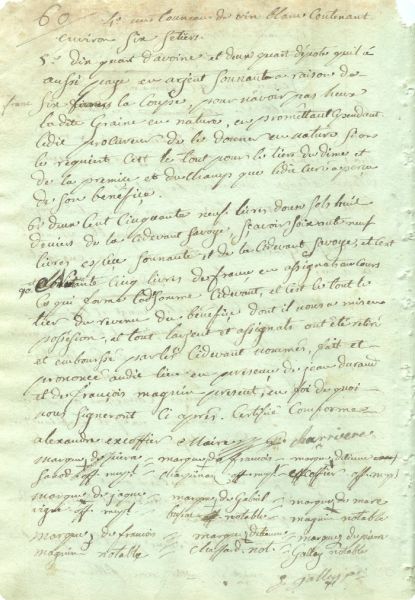 60 4° une tonneau de vin blanc contenant
environ six setiers.
5° dix quart d'avoine et deux quart qu'il à
aussi payé en argent sonnante a raison de
franc
six livres la Coupe, pour n'avoir pas heu
la dite Graine en nature, en promettant Cependant
ledit procureur de le donner en nature si on
le requient C'est le tout pour le tiers du dime et
de la premice et du champs que ledit Curé a perçu
de son benéfice.
6° deux Cent Cinquante neuf livres douze sols huit
deniers de la Cidevant Savoye, sçavoir soixante neuf
livres espece sonnante et de la Cidevant Savoye, et Cent
quatre Cinq livres de france en assignats au Cours
Ce qui forme la somme Cidevant, et C'est le tout le
tier du revenu du benéfice dont il nous a mis en
possession, et tout l'argent et assignats ont été retiré
et emboursé par les Cidevant nommés, fait et
prononcé audit lieu en presence de jean durand
et de françois magnin present, en foi de quoi
nous signeront Ci après. Certifié Conforme
alexandre excoffier Maire charriere
marque de pierre - marque de françois - marque d'étienne
off. mupl - off. mupl - excoffier off. mupl
marque de jaque - marque de gabriel - marque de marc
off. mupl - notable - magnin notable
marque de françois - marque d'étienne - marque de pierre
magnin notable - chassard not. - Gallay notable
J jallay